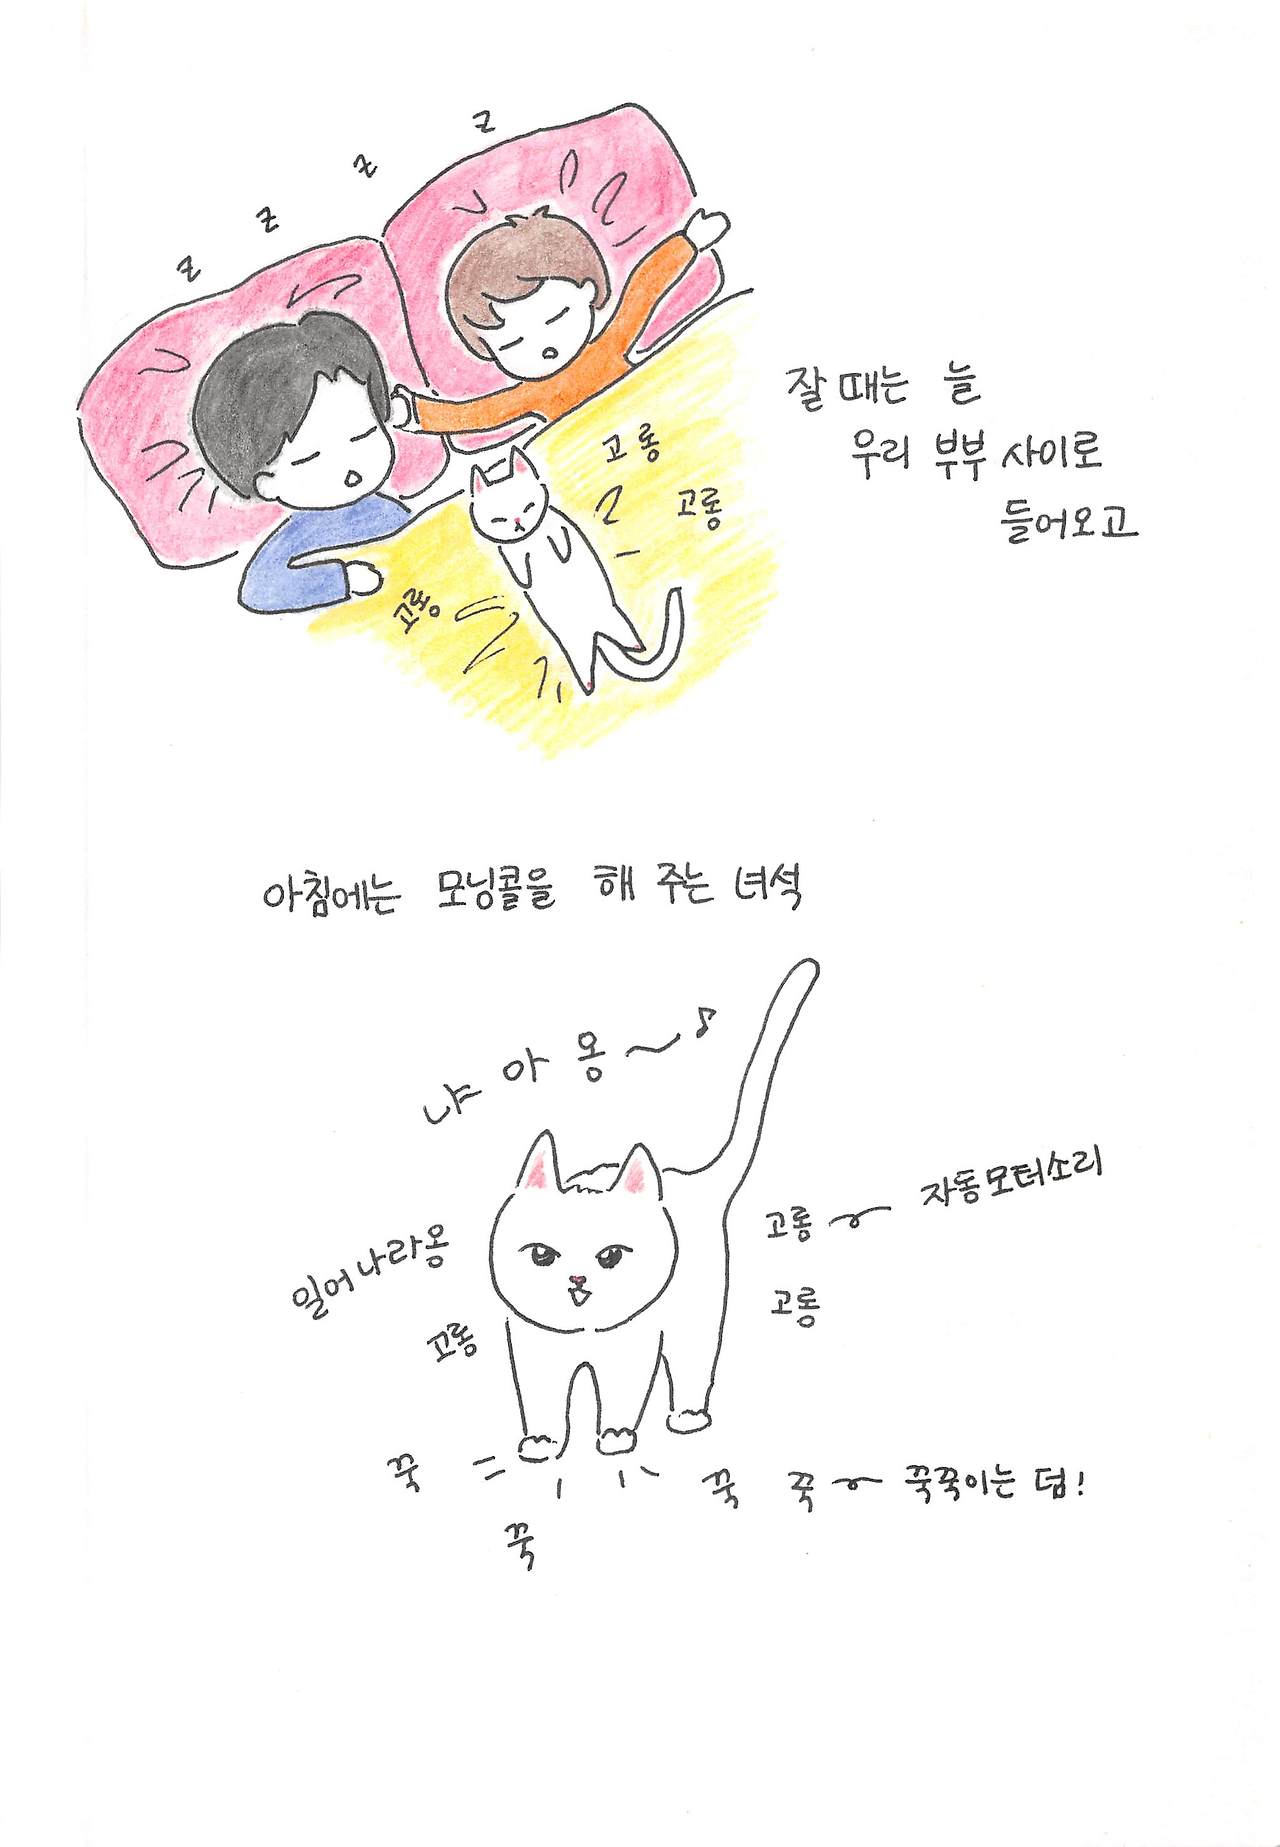 z
z
z
z
잘 때는 늘
우리 부부 사이로
들어오고
고롱
고롱
고롱
아침에는 모닝콜을 해 주는 녀석
냐아옹~♪
자동모터소리
고롱
일어나라옹
고롱
고롱
꾹
꾹 꾹 꾹꾹이는 덤!
꾹